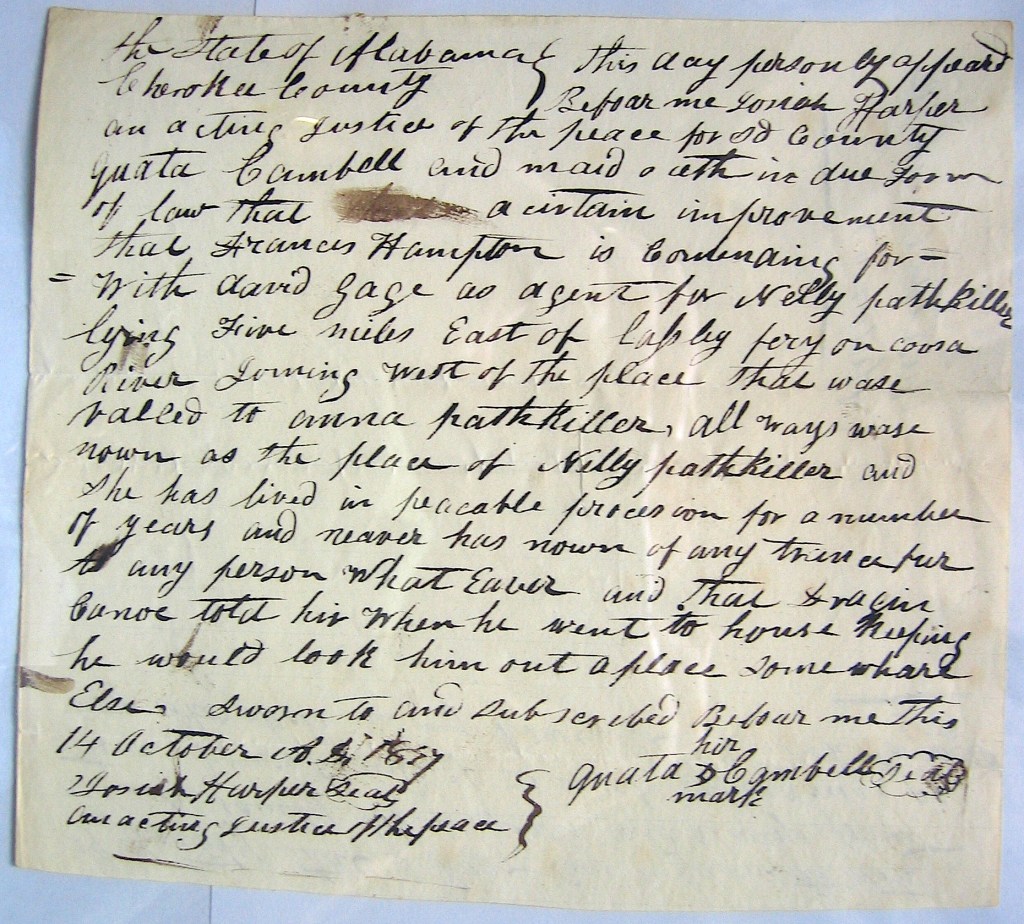 the State of Alabama } this day personly appeard
Cherokee County } Befoar me Josiah Harper
an acting Justice of the peace for Sd County
quata Cambell and maid oath in due form
of law that a cirtain improvement
that Frances Hampton is Contending for =
= With david Gage as agent for Nelly pathkiller
lying Five miles East of Cassby fery on coosa
River Joining west of the place that wase
valled to anna pathkiller, all ways wase
nown as the place of Nelly pathkiller and
She has lived in peacable procesion for a number
of years and neaver has nown of any
to any person What Eaver and that Dragin
Canoe told hir When he went to house Keeping
he would look him out a place Some whare
Else. Sworn to and Subscribed Befoar me this
14 October A.D. 1837
Josiah Harper Seal
an acting Justice of the peace
hir
quata X Cambell Seal
mark